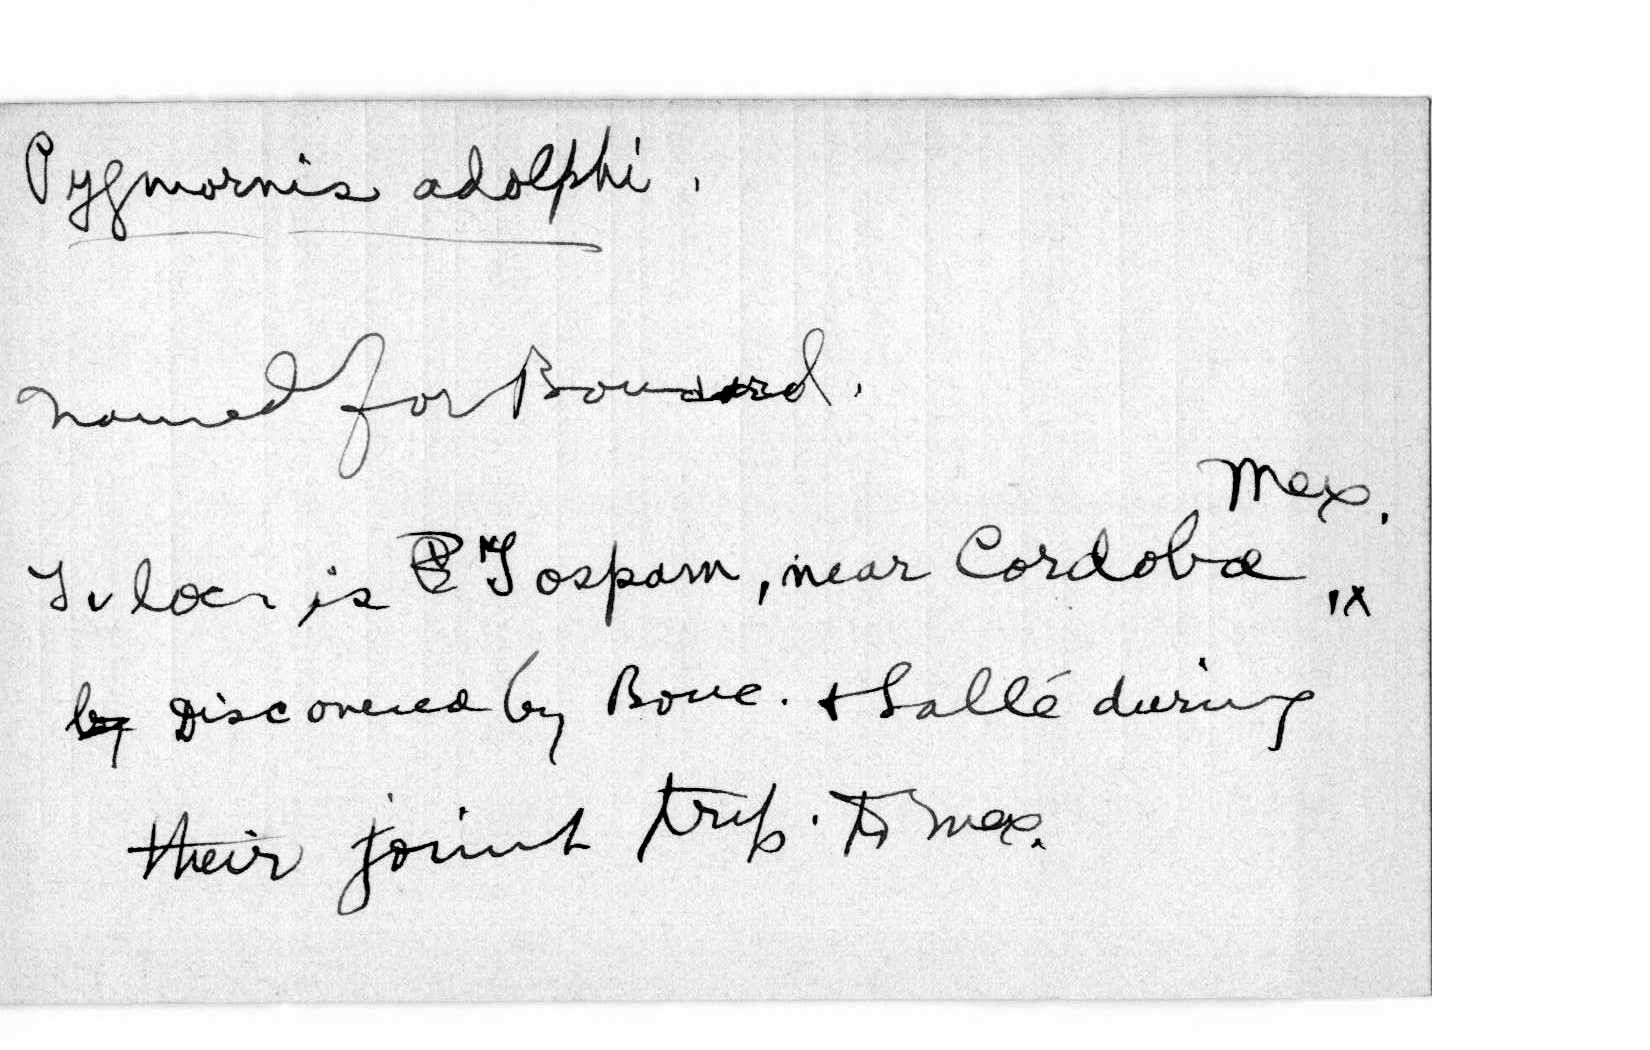 Pygmornis adolphi.
Named for Boucard.
Mex.
Ty loc is Tospam, near Cordoba,
Discovered by Bouc. & Sallé during
their joint trip. to Mex.